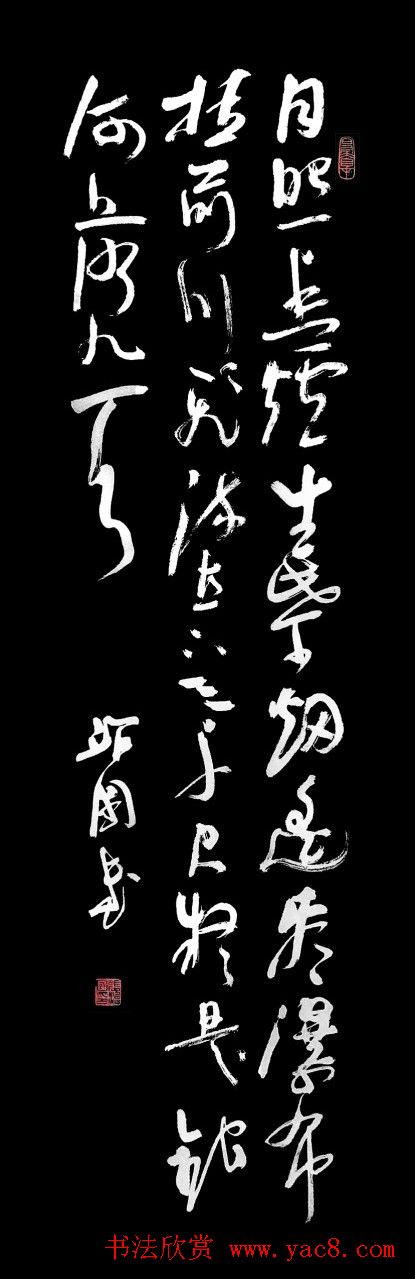 日照香爐生紫烟遙看瀑布
挂前川飛流直下三千尺疑是銀
河落九天
書法欣賞 www.yac8.com